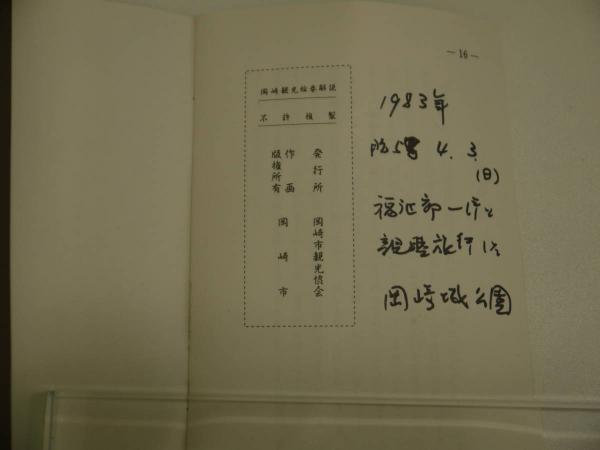 —16—
岡崎観光絵巻解説
不許複製
発行所 岡崎市観光協会
作画 岡崎市
版権所有
1983年
4.3.
(日)
親睦旅行にて
岡崎城公園